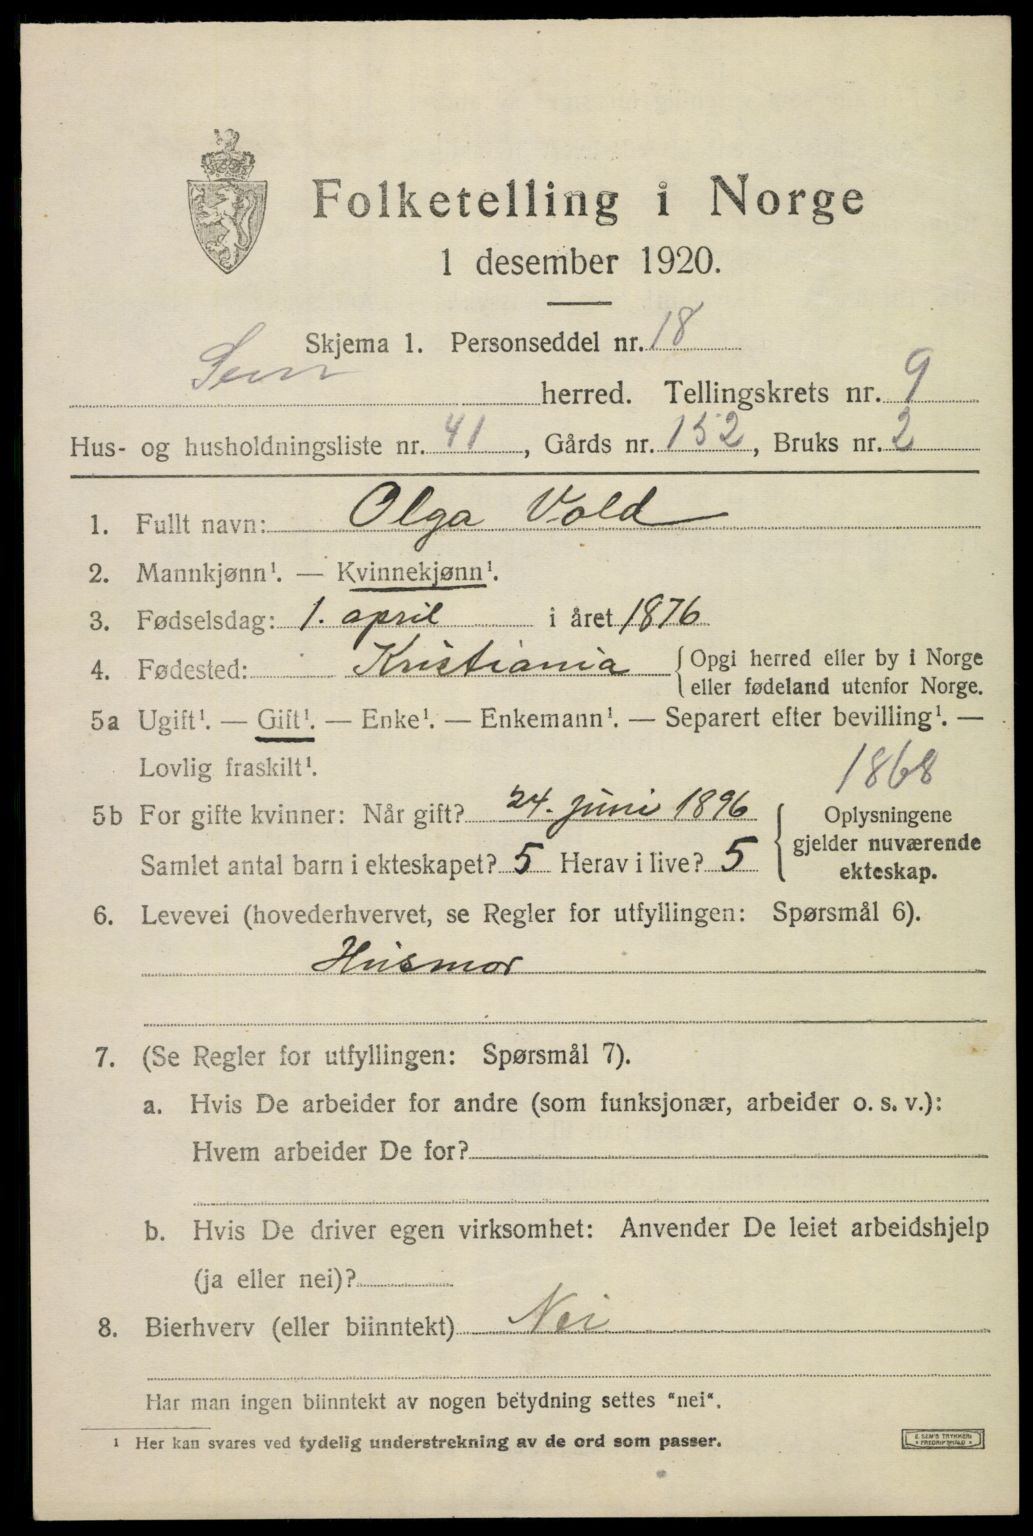 Folketelling i Norge
1 desember 1920.
Skjema 1. Personseddel nr. 18
Sem herred. Tellingskrets nr. 9
Hus- og husholdningsliste nr. 41, Gårds nr. 152, Bruks nr. 2
1. Fullt navn: Olga Vold
2. Mannkjønn¹. — Kvinnekjønn¹.
3. Fødselsdag: 1. april i året 1876
4. Fødested: Kristiania { Opgi herred eller by i Norge
eller fødeland utenfor Norge.
5a Ugift¹. — Gift¹. — Enke¹. — Enkemann¹. — Separert efter bevilling¹. —
Lovlig fraskilt¹.
1868
5b For gifte kvinner: Når gift? 24. juni 1896
Samlet antal barn i ekteskapet? 5 Herav i live? 5
Oplysningene
gjelder nuværende
ekteskap.
6. Levevei (hovederhvervet, se Regler for utfyllingen: Spørsmål 6).
Husmor
7. (Se Regler for utfyllingen: Spørsmål 7).
a. Hvis De arbeider for andre (som funksjonær, arbeider o. s. v.):
Hvem arbeider De for?
b. Hvis De driver egen virksomhet: Anvender De leiet arbeidshjelp
(ja eller nei)?
8. Bierhverv (eller biinntekt) Nei
Har man ingen biinntekt av nogen betydning settes "nei".
¹ Her kan svares ved tydelig understrekning av de ord som passer.
E. SEM'S TRYKKERI
• FREDRIKSHALD •